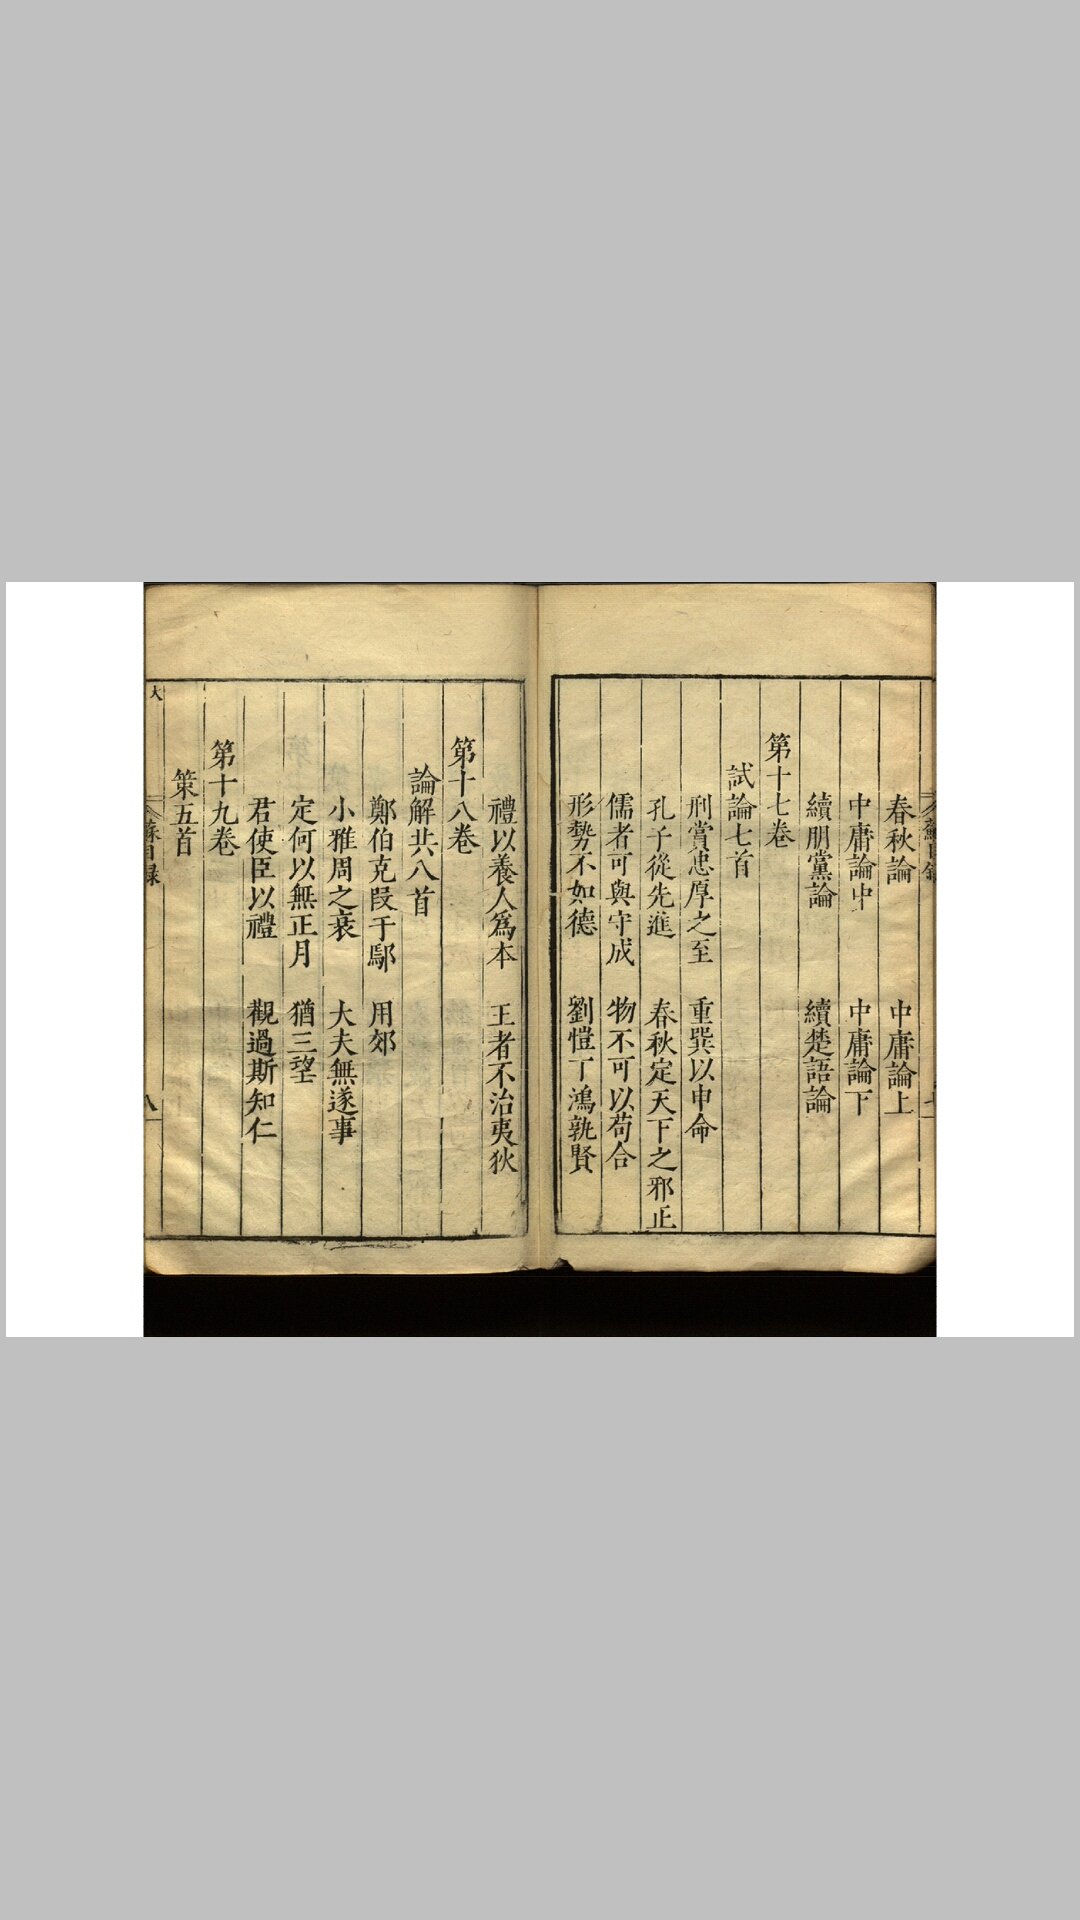 春秋論　中庸論上
中庸論中　中庸論下
續朋黨論　續楚語論
第十七卷
試論七首
刑賞忠厚之至　重巽以申命
孔子從先進　春秋定天下之邪正
儒者可與守成　物不可以苟合
形勢不如德　劉愷丁鴻孰賢
禮以養人爲本　王者不治夷狄
第十八卷
論解共八首
鄭伯克段于鄢　用郊
小雅周之衰　大夫無遂事
定何以無正月　猶三望
君使臣以禮　觀過斯知仁
第十九卷
策五首
蘇目録
八